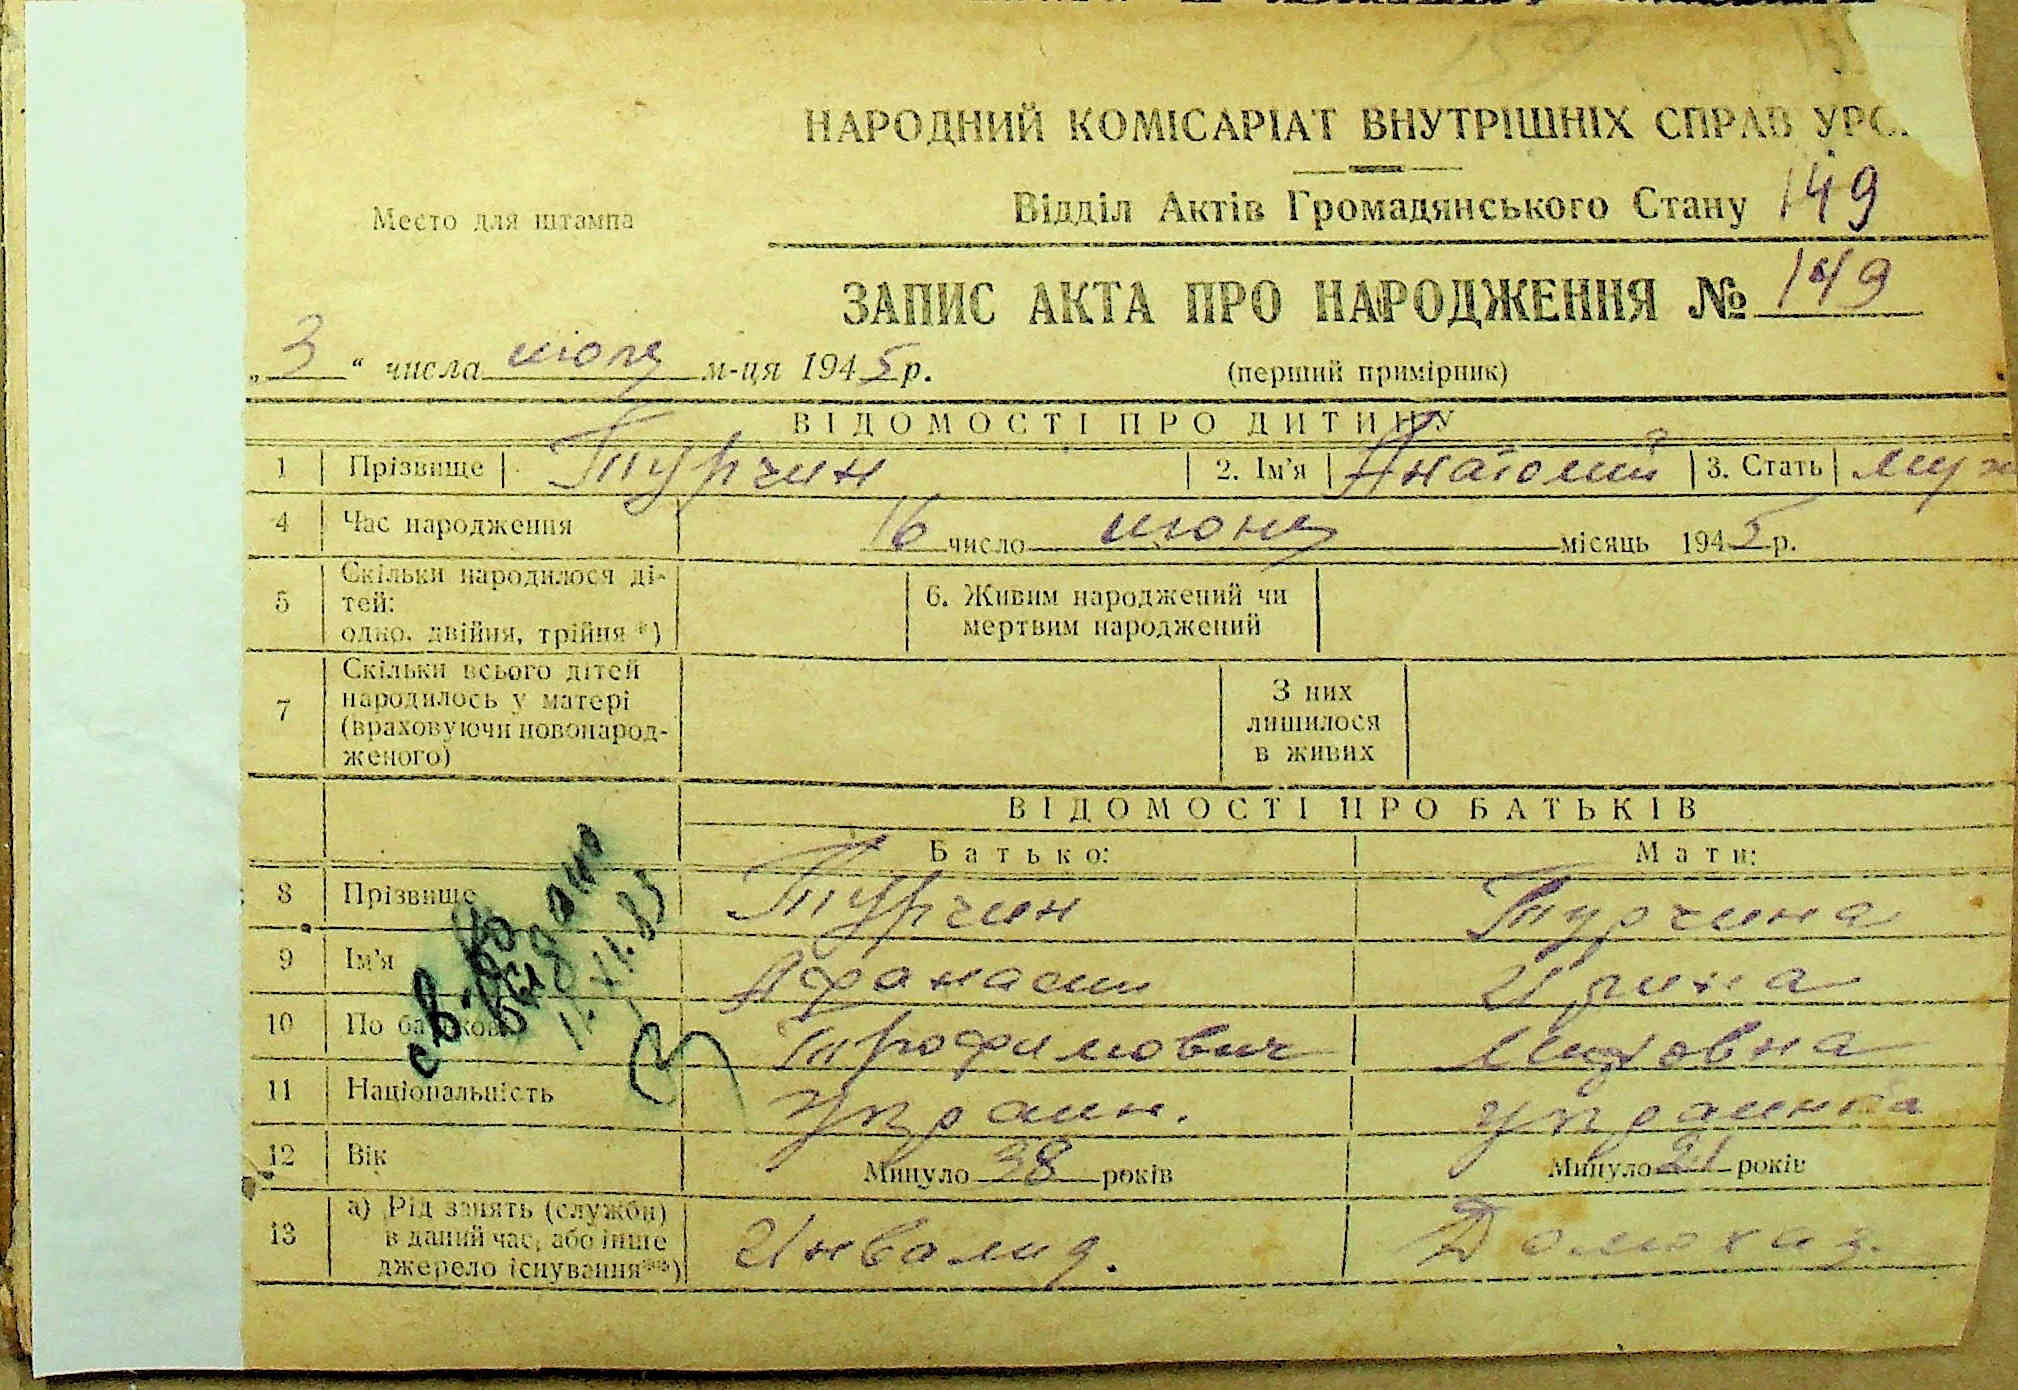 НАРОДНИЙ КОМІСАРІАТ ВНУТРІШНІХ СПРАВ УРС
Место для штампа
Відділ Актів Громадянського Стану 149
ЗАПИС АКТА ПРО НАРОДЖЕННЯ № 149
„3“ числа июля м-ця 1945 р.
(перший примірник)
ВІДОМОСТІ ПРО ДИТИНУ
1 Прізвище Турчин 2. Ім'я Анатолий 3. Стать муж
4 Час народження 16 число июня місяць 1945 р.
5 Скільки народилося ді-
тей:
одно, двійня, трійня *)
6. Живим народжений чи
мертвим народжений
7 Скільки всього дітей
народилось у матері
(враховуючи новонарод-
женого)
З них
лишилося
в живих
ВІДОМОСТІ ПРО БАТЬКІВ
Батько: Мати:
8 Прізвище Турчин Турчина
9 Ім'я Афанасий Ирина
10 По батькові Трофимович
11 Національність Украин. Украинка
12 Вік Минуло 38 років Минуло 21 років
13 а) Рід занять (служби)
в даний час, або інше
джерело існування**)
Инвалид. Домохаз.
выдано